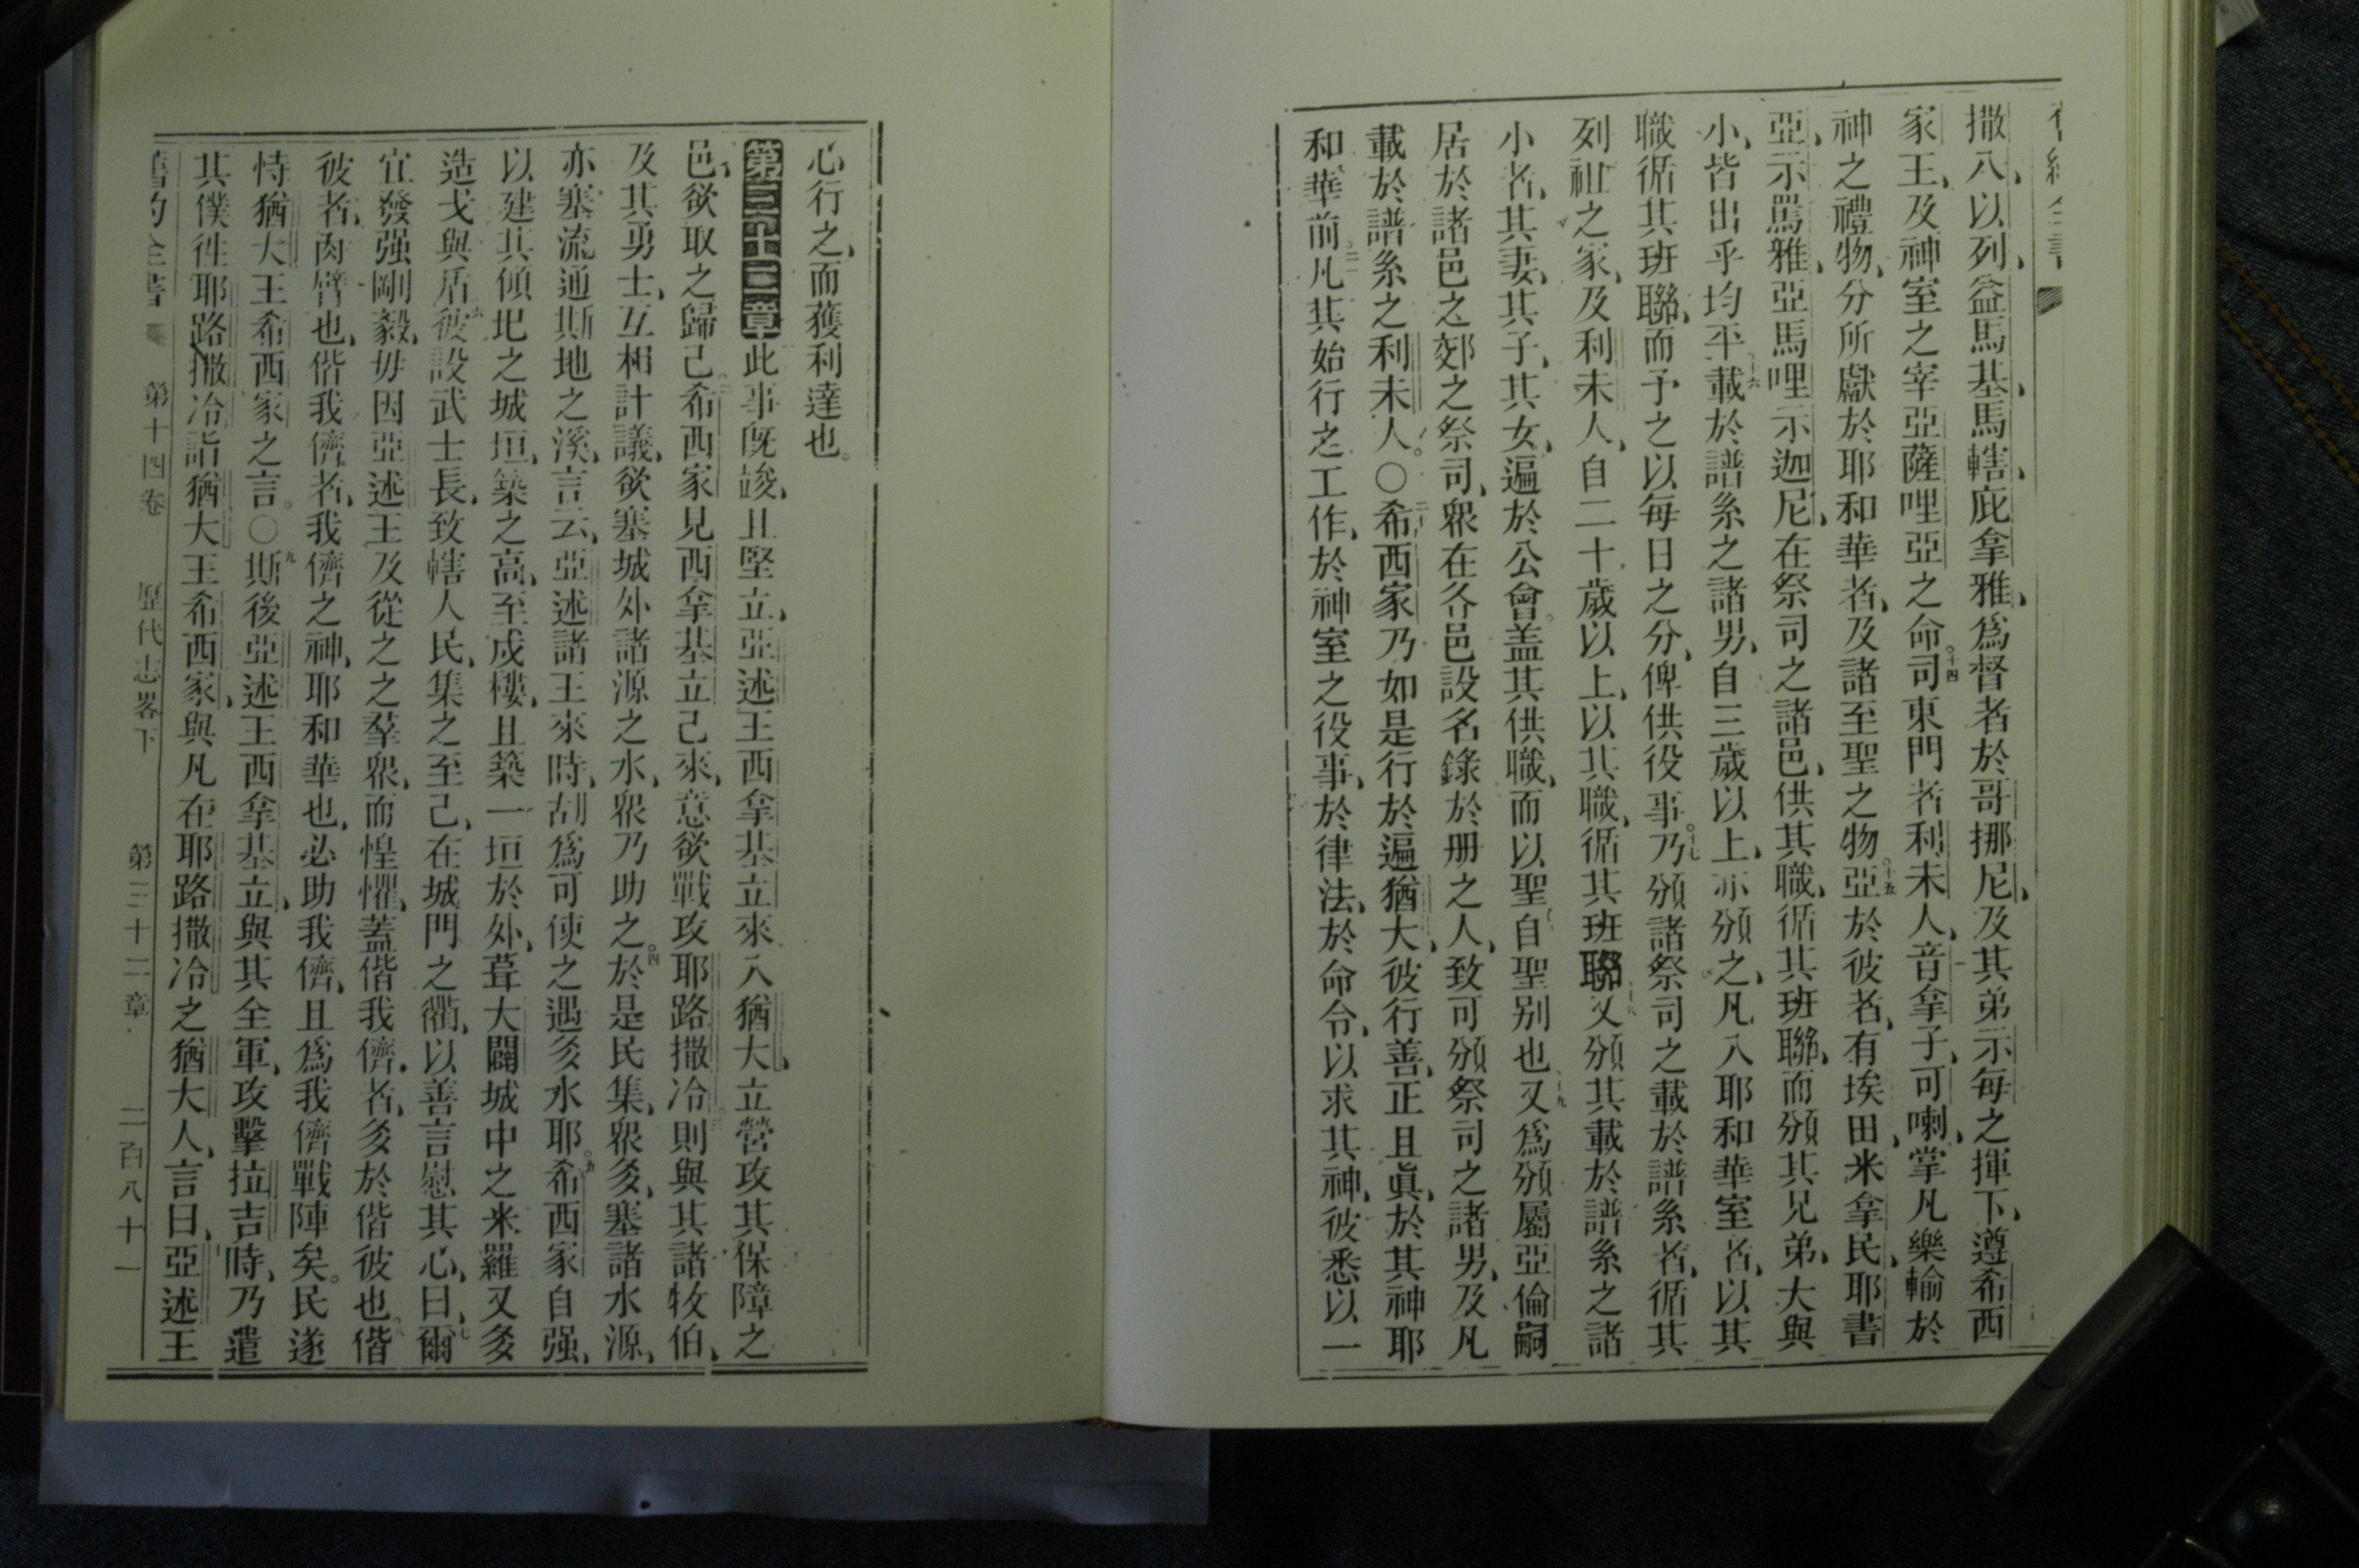 撒八、以列、益馬基、馬轄、庇拿雅、爲督者於哥挪尼、及其弟示每之揮下、遵希西
家王、及神室之宰亞薩哩亞之命。十四司東門者利未人、音拿子、可喇、掌凡樂輸於
神之禮物、分所獻於耶和華者、及諸至聖之物。十五亞於彼者、有埃田、米拿民、耶書
亞、示罵雅、亞馬哩、示迦尼、在祭司之諸邑、供其職、循其班聯、而頒其兄弟、大與
小、皆出乎均平、十六載於譜系之諸男、自三歲以上、亦頒之、凡入耶和華室者、以其
職循其班聯、而予之以每日之分、俾供役事。十七乃頒諸祭司之載於譜系者、循其
列祖之家、及利未人、自二十歲以上、以其職、循其班聯、十八又頒其載於譜系之諸
小者、其妻、其子、其女、遍於公會。盖其供職、而以聖自聖別也、十九又爲頒屬亞倫嗣
居於諸邑之郊之祭司、衆在各邑設名錄於册之人、致可頒祭司之諸男、及凡
載於譜系之利未人。〇二十希西家乃如是行於遍猶大、彼行善、正且眞、於其神耶
和華前。二一凡其始行之工作、於神室之役事、於律法、於命令、以求其神、彼悉以一
心行之、而獲利達也。
第三十二章此事旣竣、且堅立、亞述王西拿基立來入猶大、立營攻其保障之
邑、欲取之歸己。二希西家見西拿基立己來、意欲戰攻耶路撒冷。三則與其諸牧伯、
及其勇士、互相計議、欲塞城外諸源之水、衆乃助之。四於是民集、衆多、塞諸水源、
亦塞流通斯地之溪、言云、亞述諸王來時、胡爲可使之遇多水耶。五希西家自强、
以建其傾圯之城垣、築之高、至成樓、且築一垣於外、葺大闢城中之米羅又多
造戈與盾、六彼設武士長、致轄人民、集之至己、在城門之衢、以善言慰其心、曰、七爾
宜發强剛毅、毋因亞述王及從之之羣衆、而惶懼、蓋偕我儕者、多於偕彼也。八偕
彼者、肉臂也、偕我儕者、我儕之神、耶和華也、必助我儕、且爲我儕戰陣矣。民遂
恃猶大王希西家之言。〇九斯後亞述王西拿基立、與其全軍、攻擊拉吉時、乃遣
其僕徃耶路撒冷、詣猶大王希西家、與凡在耶路撒冷之猶大人、言曰、亞述王
舊約全書 第十四卷 歷代志畧下 第三十二章 二百八十一